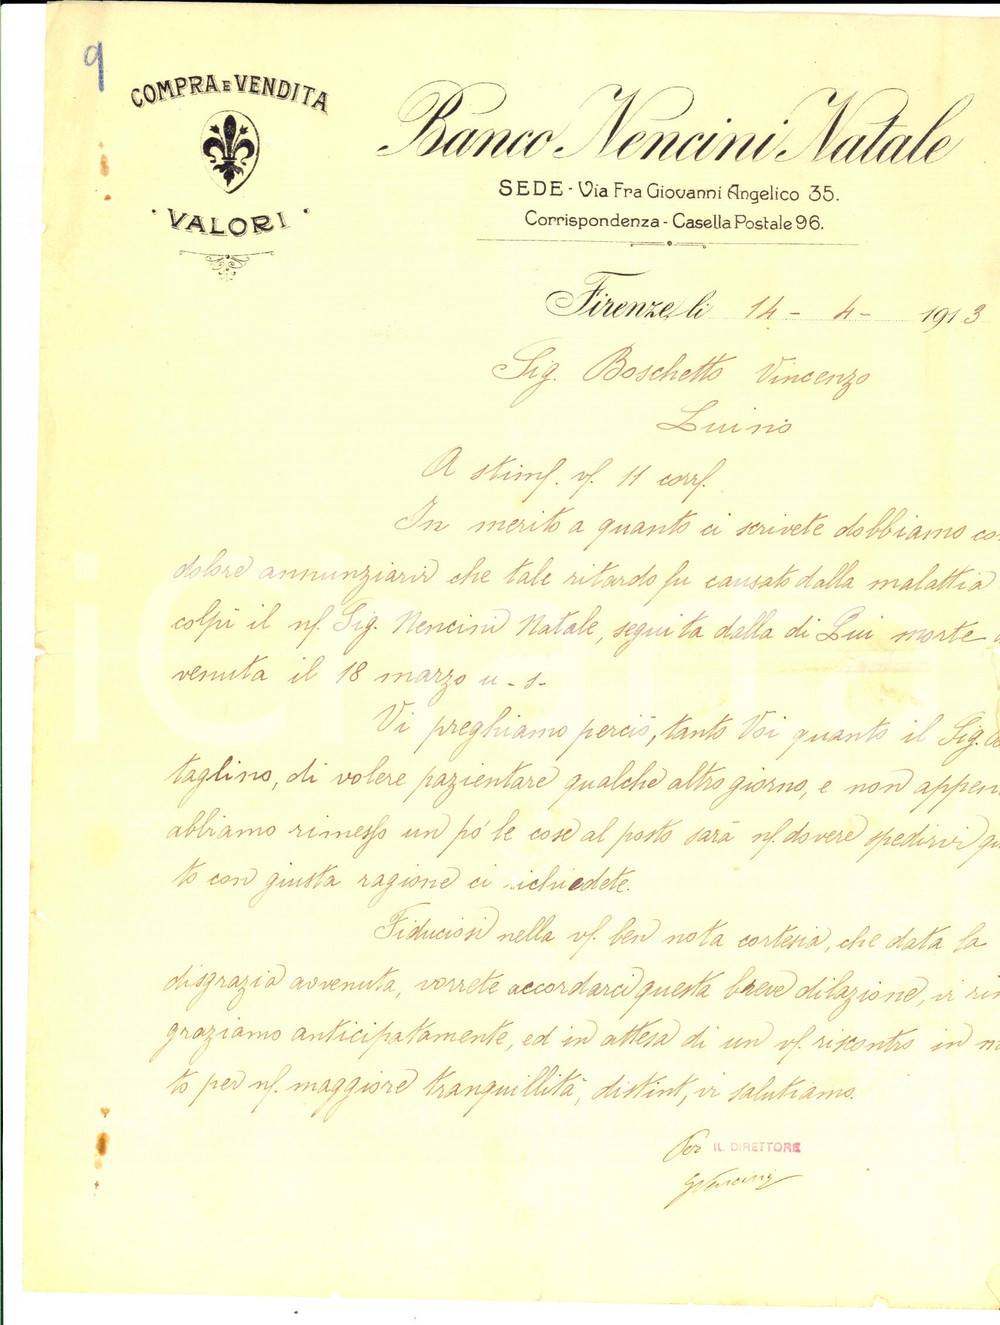 9
COMPRA E VENDITA
VALORI
Banco Nencini Natale
SEDE - Via Fra Giovanni Angelico 35.
Corrispondenza - Casella Postale 96.
Firenze, li 14 - 4 - 1913
Sig. Boschetto Vincenzo
Luino
A stimf. vf. 11 corrf.
In merito a quanto ci scrivete dobbiamo co
dolore annunziarvi che tale ritardo fu causato dalla malattia
colpì il nf. Sig. Nencini Natale, seguita dalla di Lui morte a
venuta il 18 marzo u - s -
Vi preghiamo perciò, tanto Voi quanto il Sig.
taglino, di volere pazientare qualche altro giorno, e non appen
abbiamo rimesso un pò le cose al posto sarà nf. dovere spedirvi qu
to con giusta ragione ci richiedete.
Fiduciosi nella vf. ben nota cortesia, che data la
disgrazia avvenuta, vorrete accordarci questa breve dilazione, vi rin
graziamo anticipatamente, ed in attesa di un vf. riscontro in m
to per nf. maggiore tranquillità, distint, vi salutiamo.
Per IL DIRETTORE
GNencini